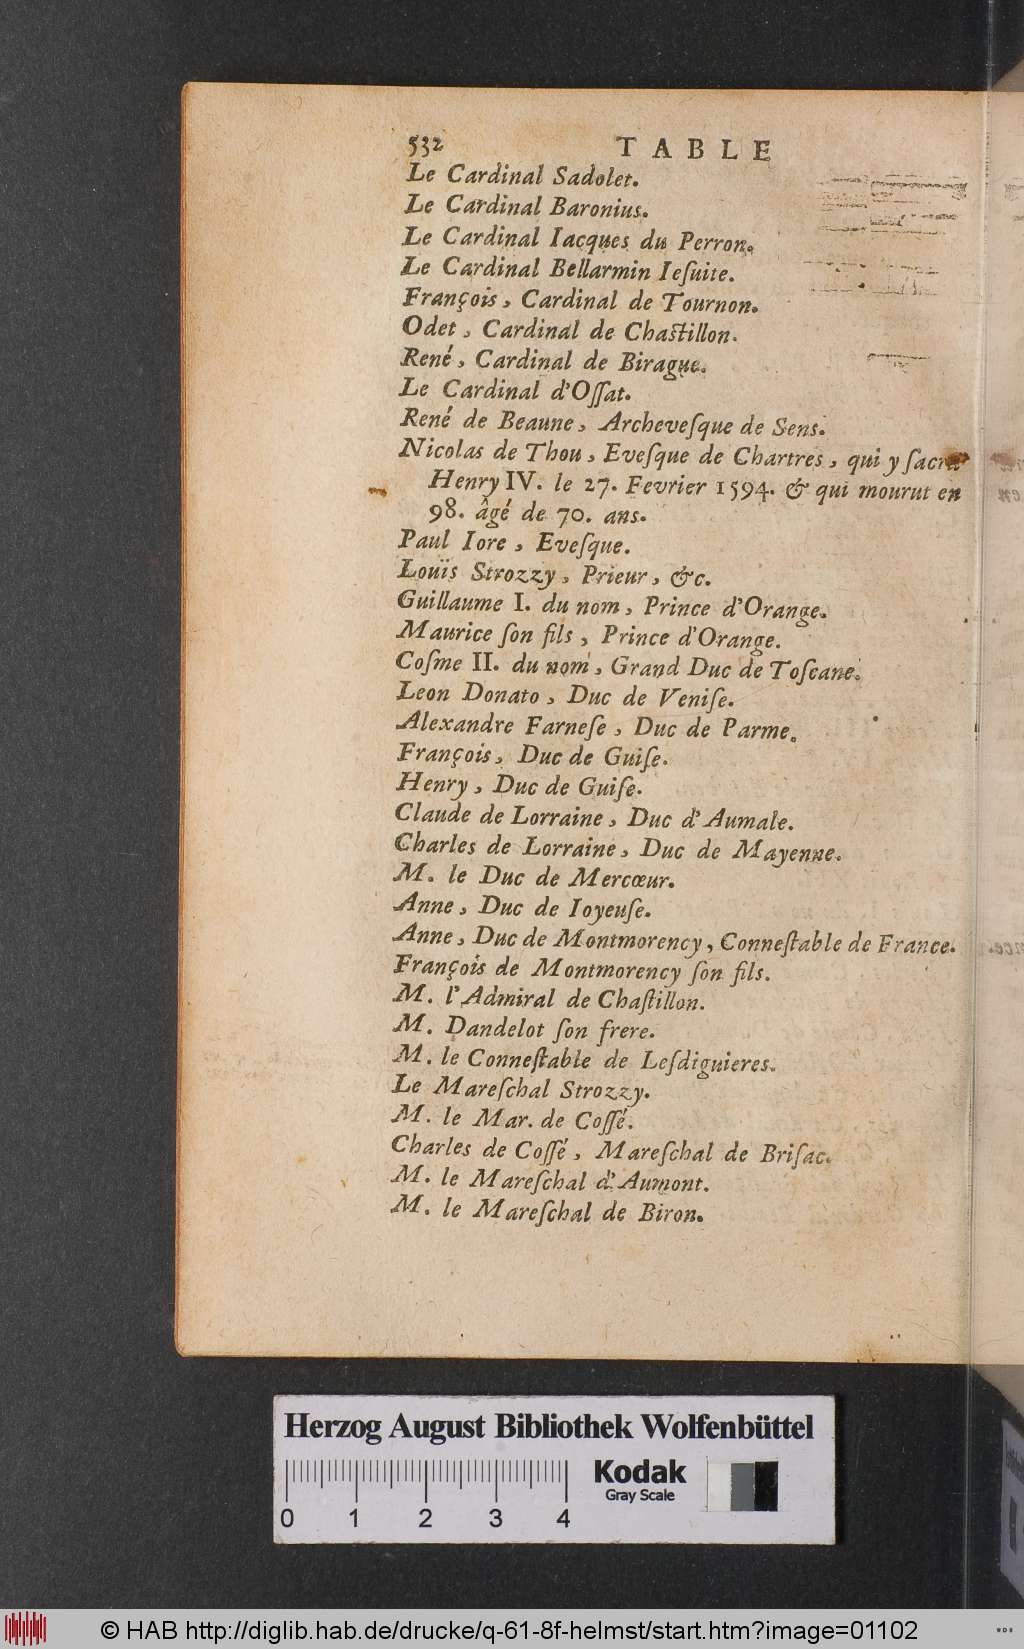 532 TABLE
Le Cardinal Sadolet.
Le Cardinal Baronius.
Le Cardinal Iacques du Perron.
Le Cardinal Bellarmin Ieſuite.
François, Cardinal de Tournon.
Odet, Cardinal de Chaſtillon.
René, Cardinal de Birague.
Le Cardinal d'Oſſat.
René de Beaune, Archeveſque de Sens.
Nicolas de Thou, Eveſque de Chartres, qui y ſacra
Henry IV. le 27. Fevrier 1594. & qui mourut en
98. âgé de 70. ans.
Paul Iore, Eveſque.
Louïs Strozzy, Prieur, &c.
Guillaume I. du nom, Prince d'Orange.
Maurice ſon fils, Prince d'Orange.
Coſme II. du nom, Grand Duc de Toſcane.
Leon Donato, Duc de Veniſe.
Alexandre Farneſe, Duc de Parme.
François, Duc de Guiſe.
Henry, Duc de Guiſe.
Claude de Lorraine, Duc d'Aumale.
Charles de Lorraine, Duc de Mayenne.
M. le Duc de Mercœur.
Anne, Duc de Ioyeuſe.
Anne, Duc de Montmorency, Conneſtable de France.
François de Montmorency ſon fils.
M. l'Admiral de Chaſtillon.
M. Dandelot ſon frere.
M. le Conneſtable de Leſdiguieres.
Le Mareſchal Strozzy.
M. le Mar. de Coſſé.
Charles de Coſſé, Mareſchal de Briſac.
M. le Mareſchal d'Aumont.
M. le Mareſchal de Biron.
Herzog August Bibliothek Wolfenbüttel
Kodak
Gray Scale
0 1 2 3 4
© HAB http://diglib.hab.de/drucke/q-61-8f-helmst/start.htm?image=01102